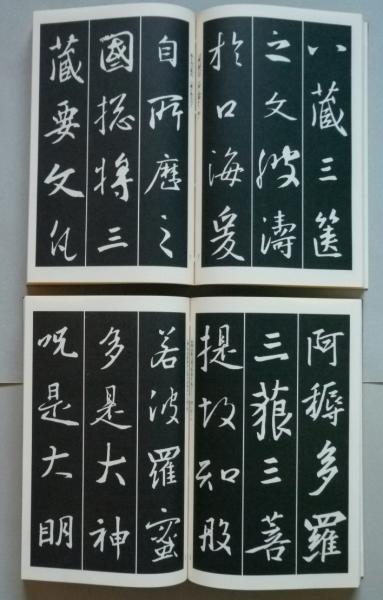 八藏三篋
之文波濤
於口海爰
自所歷之
國揔將三
藏要文凡
阿耨多羅
三藐三菩
提故知般
若波羅蜜
多是大神
呪是大明